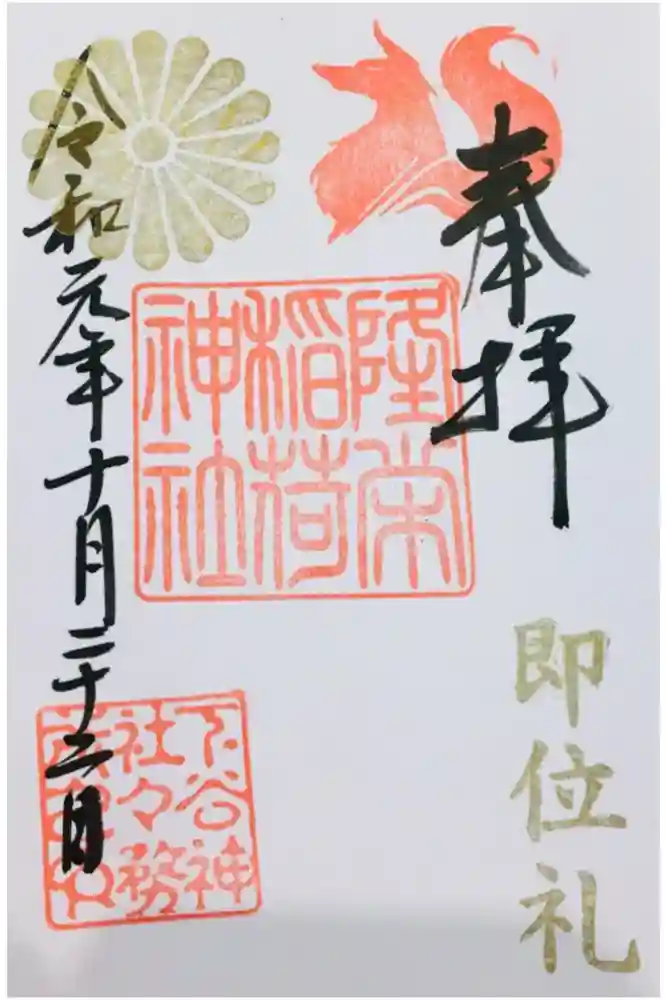 奉拝
即位礼
隆栄
稲荷
神社
令和元年十月二十二日
下谷神
社々務